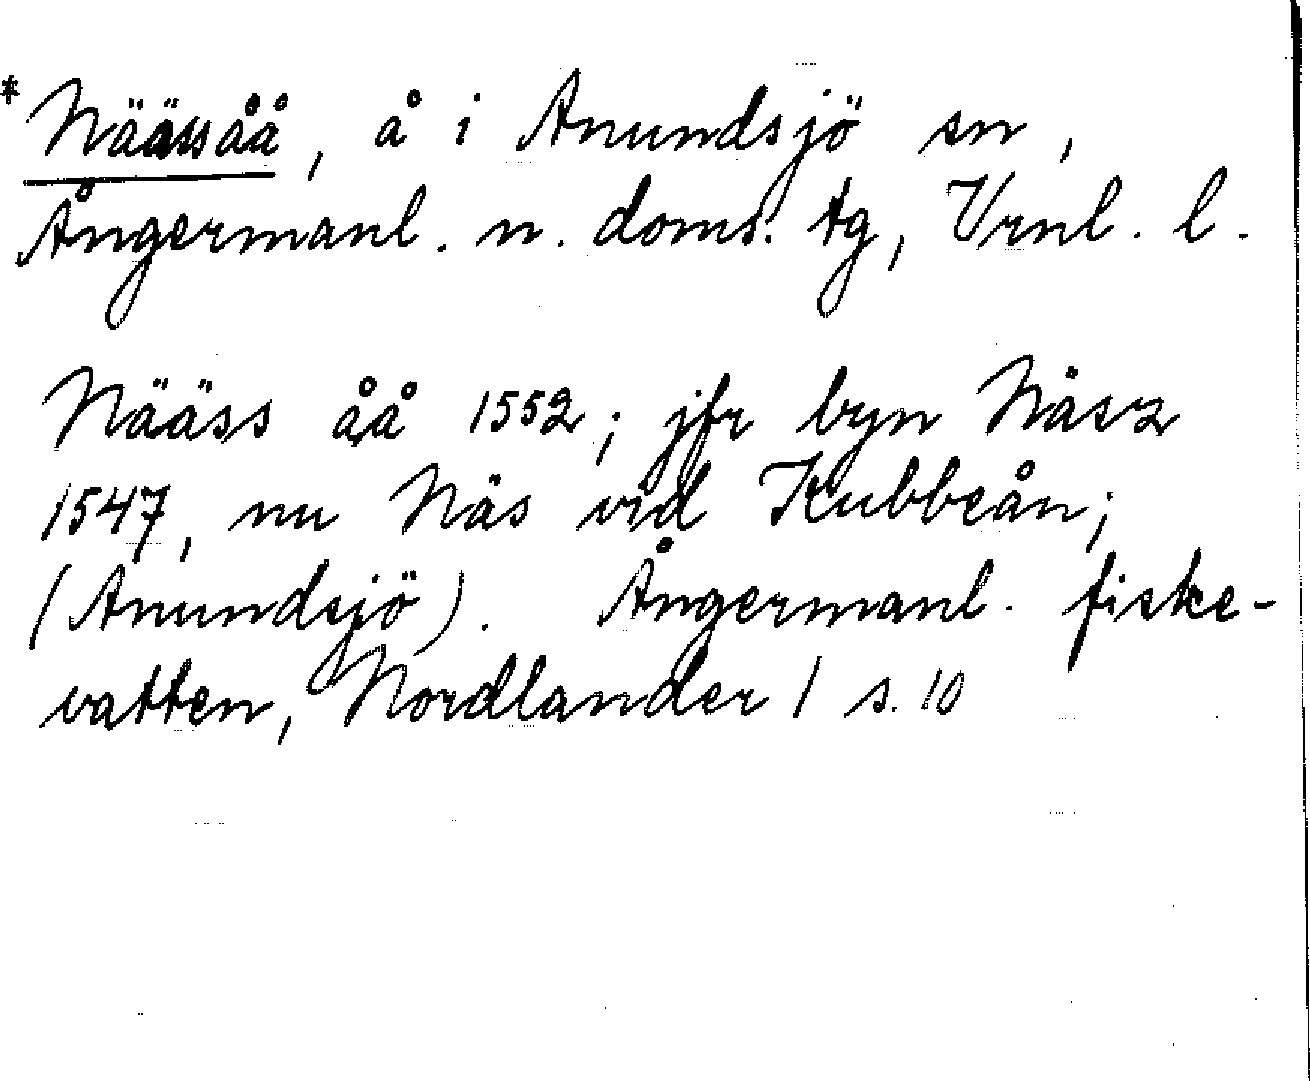 *Nääsåå, å i Anundsjö sn,
Ångermanl. n. doms. tg, Vrnl. l.
Nääss åå 1552; jfr byn Näsz
1547, nu Näs vid Kubbeån;
(Anundsjö). Ångermanl. fiske-
vatten, Nordlander 1 s. 10